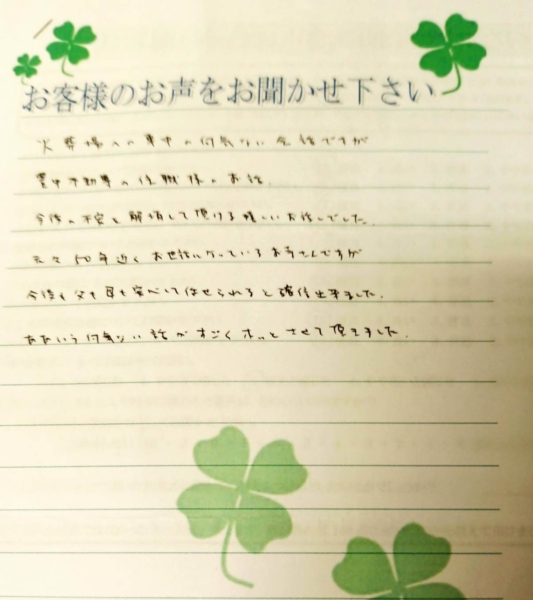 お客様のお声をお聞かせ下さい
火葬場への車中の何気ない会話ですが
豊中不動寺の住職様のお話、
今後の不安を解消して頂ける嬉しいお話しでした。
元々50年近くお世話になっているお寺さんですが
今後も父も母も安心して任せられると確信出来ました。
ああいう何気ない話がすごくホッとさせて頂きました。